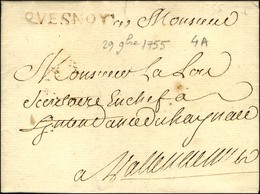 QVESNOY A Monsieur
29 9bre 1755 4A
Monsieur La Lou
Secretaire En chef a
Lintendance du haynaut
a Vallenciennes